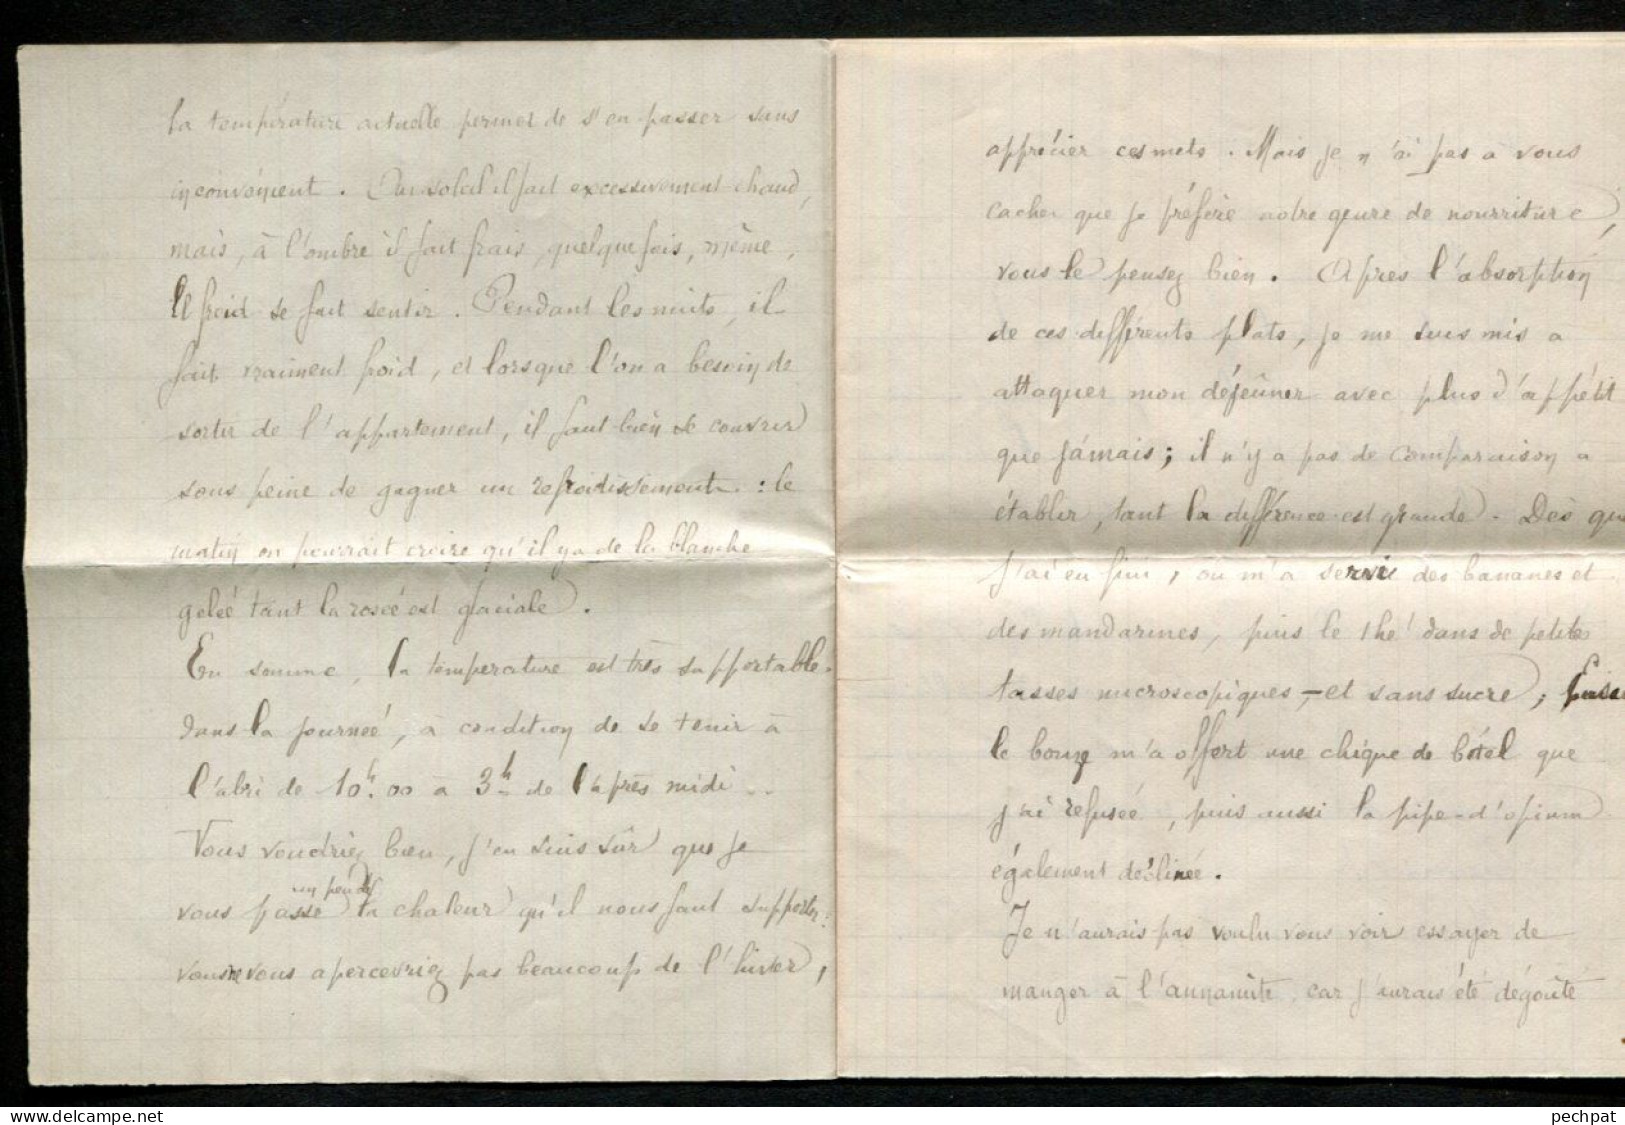 la température actuelle permet de s'en passer sans
inconvénient. Au soleil il fait excessivement chaud,
mais, à l'ombre il fait frais, quelquefois, même,
le froid se fait sentir. Pendant les nuits, il
fait vraiment froid, et lorsque l'on a besoin de
sortir de l'appartement, il faut bien se couvrir
sous peine de gagner un refroidissement : le
matin on pourrait croire qu'il y a de la blanche
gelée tant la rosée est glaciale.
En somme, la température est très supportable
dans la journée, à condition de se tenir à
l'abri de 10h.00 à 3h de l'après midi ..
Vous voudriez bien, j'en suis sûr que je
vous passe un peu de la chaleur qu'il nous faut supporter :
vous ne vous apercevriez pas beaucoup de l'hiver,
apprécier ces mets. Mais je n'ai pas à vous
cacher que je préfère notre genre de nourriture,
vous le pensez bien. Après l'absorption
de ces différents plats, je me suis mis a
attaquer mon déjeûner avec plus d'appétit
que jamais ; il n'y a pas de comparaison a
établir, tant la différence est grande. Dès que
j'ai eu fini, on m'a servi des bananes et
des mandarines, puis le thé dans de petites
tasses microscopiques, - et sans sucre ; puis
le bonze m'a offert une chique de bétel que
j'ai refusée, puis aussi la pipe d'opium
également déclinée.
Je n'aurais pas voulu vous voir essayer de
manger à l'annamite, car j'aurais été dégoûté
pechpat